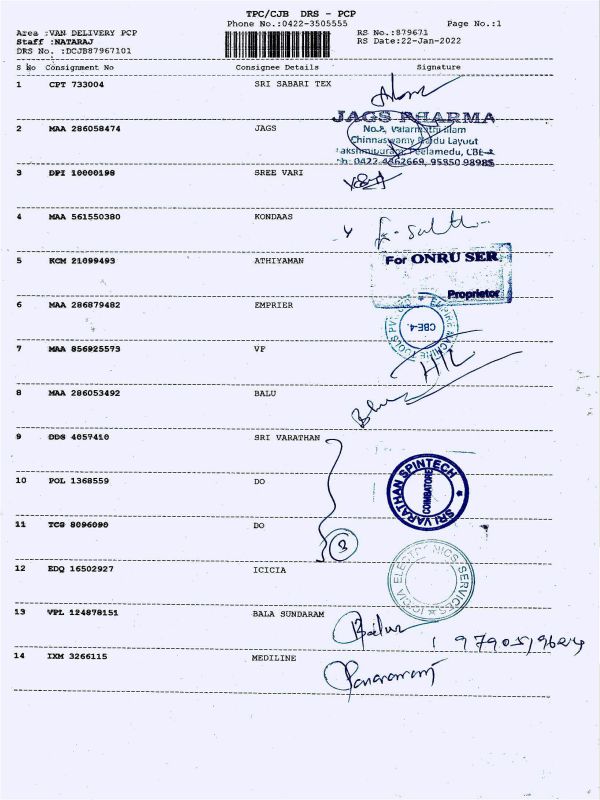 TPC/CJB DRS - PCP
Phone No.:0422-3505555
Page No.:1
Area :VAN DELIVERY PCP
Staff :NATARAJ
DRS No. :DCJB87967101
RS No.:879671
RS Date:22-Jan-2022
S No Consignment No Consignee Details Signature
1 CPT 733004 SRI SABARI TEX
JAGS PHARMA
2 MAA 286058474 JAGS
No.2, Valarmathi Illam
Chinnaswamy Naidu Layout
Lakshmipuram, Peelamedu, CBE-
Ph: 0422 4362669, 95850 98985
3 DPI 10000198 SREE VARI
4 MAA 561550380 KONDAAS
5 KCM 21099493 ATHIYAMAN
For ONRU SER
Proprietor
6 MAA 286879482 EMPRIER
EMPIRE MACHINE TOOLS PVT
CBE-4.
7 MAA 856925573 VP
8 MAA 286053492 BALU
9 DDS 4057410 SRI VARATHAN
10 POL 1368559 DO
SRI VARATHAN SPINTECH
COIMBATORE
11 TCG 8096090 DO
3
12 EDQ 16502927 ICICIA
ICICIA ELECTRONICS SERVICES
13 VPL 124878151 BALA SUNDARAM
14 IXM 3266115 MEDILINE